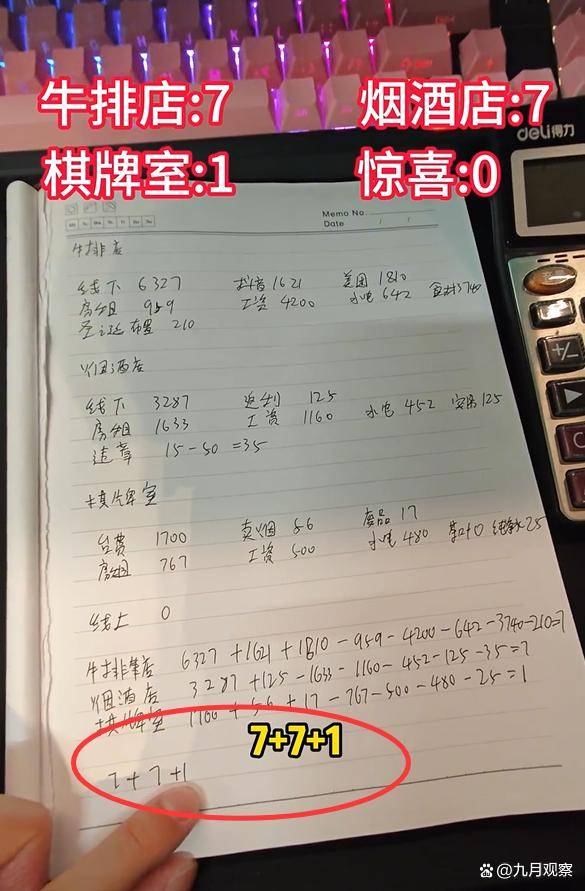 牛排店:7 烟酒店:7
棋牌室:1 惊喜:0
deli得力
Memo No.
Date / /
Mo Tu We Th Fr Sa Su
牛排店
线下 6327 抖音1621 美团1810
房租 959 工资 4200 水电 642 食材3740
圣诞布置 210
烟酒店
线下 3287 返利 125
房租 1633 工资 1160 水电 452 125
违章 15-50 =35
棋牌室
台费 1700 卖烟 56 废品 17
房租 767 工资 500 水电 480 0 纯净水25
线上 0
牛排店 6327+1621+1810-959-4200-642-3740-210=7
烟酒店 3287+125-1633-1160-452-125-35=7
棋牌室 1700+56+17-767-500-480-25=1
7+7+1
7+7+1
+/-
C
@九月观察